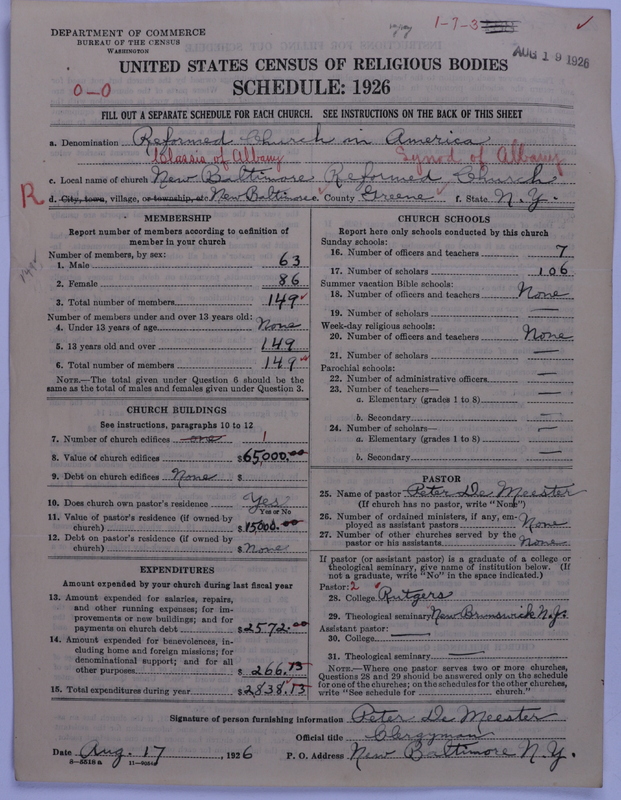 1-7-3
DEPARTMENT OF COMMERCE
BUREAU OF THE CENSUS
WASHINGTON
AUG 19 1926
UNITED STATES CENSUS OF RELIGIOUS BODIES
SCHEDULE: 1926
0-0
FILL OUT A SEPARATE SCHEDULE FOR EACH CHURCH. SEE INSTRUCTIONS ON THE BACK OF THIS SHEET
a. Denomination Reformed Church in America
Classis of Albany Synod of Albany
c. Local name of church New Baltimore Reformed Church
R
d. City, town, village, or township, etc New Baltimore e. County Greene f. State N.Y.
MEMBERSHIP
Report number of members according to definition of
member in your church
Number of members, by sex:
1. Male 63
2. Female 86
3. Total number of members 149
Number of members under and over 13 years old:
4. Under 13 years of age None
5. 13 years old and over 149
6. Total number of members 149
NOTE.—The total given under Question 6 should be the
same as the total of males and females given under Question 3.
CHURCH BUILDINGS
See instructions, paragraphs 10 to 12
7. Number of church edifices one 1
8. Value of church edifices $65000.00
9. Debt on church edifices None $
10. Does church own pastor's residence Yes
Yes or No
11. Value of pastor's residence (if owned by
church) $15000.00
12. Debt on pastor's residence (if owned by
church) $ None
EXPENDITURES
Amount expended by your church during last fiscal year
13. Amount expended for salaries, repairs,
and other running expenses; for im-
provements or new buildings; and for
payments on church debt $2572.00
14. Amount expended for benevolences, in-
cluding home and foreign missions; for
denominational support; and for all
other purposes $266.13
15. Total expenditures during year $2838.13
CHURCH SCHOOLS
Report here only schools conducted by this church
Sunday schools:
16. Number of officers and teachers 7
17. Number of scholars 106
Summer vacation Bible schools:
18. Number of officers and teachers None
19. Number of scholars —
Week-day religious schools:
20. Number of officers and teachers None
21. Number of scholars —
Parochial schools:
22. Number of administrative officers —
23. Number of teachers—
a. Elementary (grades 1 to 8) —
b. Secondary —
24. Number of scholars—
a. Elementary (grades 1 to 8) —
b. Secondary —
PASTOR
25. Name of pastor Peter De Meester
(If church has no pastor, write "None")
26. Number of ordained ministers, if any, em-
ployed as assistant pastors None
27. Number of other churches served by the
pastor or his assistants None
If pastor (or assistant pastor) is a graduate of a college or
theological seminary, give name of institution below. (If
not a graduate, write "No" in the space indicated.)
Pastor: 2
28. College Rutgers
29. Theological seminary New Brunswick N.J.
Assistant pastor:
30. College —
31. Theological seminary —
NOTE.—Where one pastor serves two or more churches,
Questions 28 and 29 should be answered only on the schedule
for one of the churches; on the schedules for the other churches,
write "See schedule for church."
Signature of person furnishing information Peter De Meester
Official title Clergyman
Date Aug. 17, 1926 P. O. Address New Baltimore N.Y.
8-5518 a